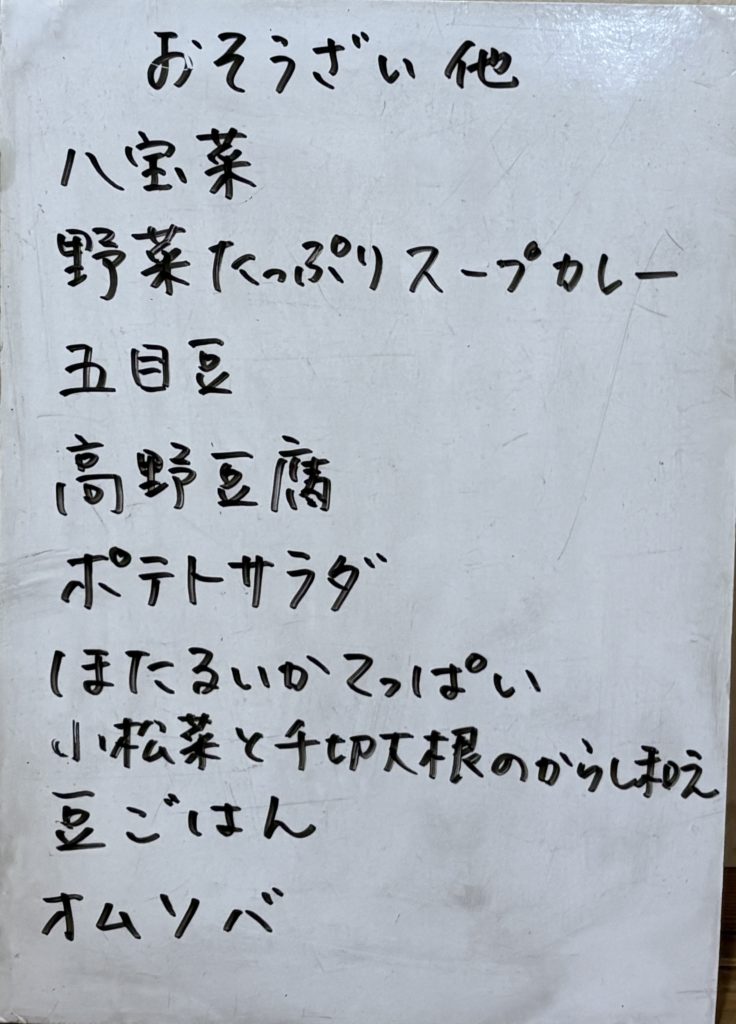 おそうざい 他
八宝菜
野菜たっぷりスープカレー
五目豆
高野豆腐
ポテトサラダ
ほたるいかてっぱい
小松菜と千切大根のからし和え
豆ごはん
オムソバ